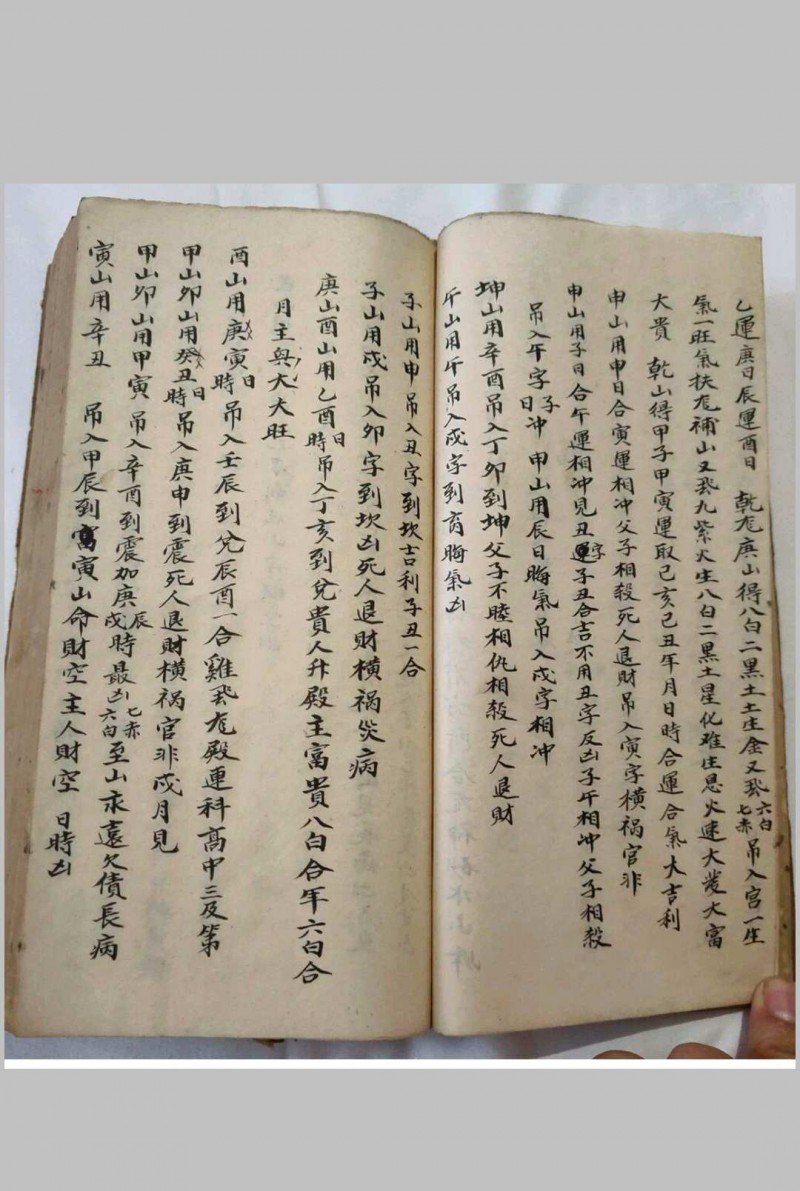 乙運庚日辰運酉日 乾龙庚山得八白二黑土土生金又飛六白七赤吊入宫一生
氣一旺氣扶龙補山又飛九紫火生八白二黑土星化难生恩火速大發大富
大貴 乾山得甲子甲寅運取己亥己丑年月日時合運合氣大吉利
申山用申日合寅運相冲父子相殺死人退財吊入寅字横禍官非
申山用子日合午運相冲見丑運字子丑合吉不用丑字反凶子午相冲父子相殺
吊入午字子日冲 申山用辰日晦氣吊入戌字相冲
坤山用辛酉吊入丁卯到坤父子不睦相仇相殺死人退財
午山用午吊入戌字到离晦氣凶
子山用申吊入丑字到坎吉利子丑一合
子山用戌吊入卯字到坎凶死人退財横禍災病
庚山酉山用乙酉日時吊入丁亥到兌貴人升殿主富貴八白合年六白合
月主興大大旺
酉山用庚寅日時吊入壬辰到兌辰酉一合雞飛龙殿連科高中三及第
甲山卯山用癸丑日時吊入庚申到震死人退財横禍官非戌月見
甲山卯山用甲寅 吊入辛酉到震加庚辰戌時最凶七赤六白至山永遠欠債長病
寅山用辛丑 吊入甲辰到寅山命財空主人財空 日時凶